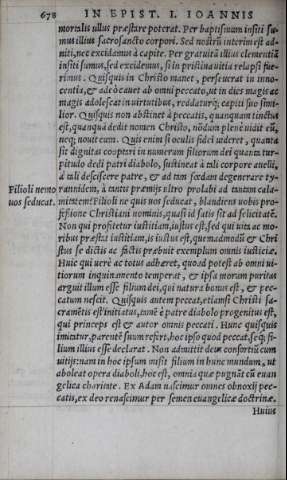 678 IN EPIST. I. IOANNIS
mortalis ullus præstare poterat. Per baptismum insiti su-
mus illius sacrosancto corpori. Sed nostrũ interim est ad-
niti, nec excidamus à capite. Per gratuitã illius clementiã
insiti sumus, sed excidemus, si in pristina uitia relapsi fue-
rimus. Quisquis in Christo manet, perseuerat in inno-
centia, & adeò cauet ab omni peccato, ut in dies magis ac
magis adolescat in uirtutibus, reddaturq; capiti suo simi-
lior. Quisquis non abstinet à peccatis, quanquam tinctus
est, quanquã dedit nomen Christo, nõdum plenè uidit eũ,
neq; nouit eum. Quis enim si oculis fidei uideret, quanta
sit dignitas cooptari in numerum filiorum dei quanta tur-
pitudo dedi patri diabolo, sustineat à tali corpore auelli,
à tali desciscere patre, & ad tam fœdam degenerare ty-
Filioli nemo rannidem, à tantis præmijs ultro prolabi ad tantam cala-
uos seducat. mitatem? Filioli ne quis uos seducat, blandiens uobis pro-
fessione Christiani nominis, quasi id satis sit ad felicitatẽ.
Non qui profitetur iustitiam, iustus est, sed qui uita ac mo-
ribus præstat iustitiam, is iustus est, quemadmodũ & Chri
stus se dictis ac factis præbuit exemplum omnis iusticiæ.
Huic qui uerè ac totus adhæret, quoad potest ab omni ui-
tiorum inquinamento temperat, & ipsa morum puritas
arguit illum esse filium dei, qui natura bonus est, & pec-
catum nescit. Quisquis autem peccat, etiamsi Christi sa-
cramẽtis est initiatus, tamẽ è patre diabolo progenitus est,
qui princeps est & autor omnis peccati. Hunc quisquis
imitatur, parentẽ suum refert, hoc ipso quod peccat, seq; fi-
lium illius esse declarat. Non admittit deus consortiũ cum
uitijs: nam in hoc ipsum misit filium in hunc mundum, ut
aboleat opera diaboli, hoc est, omnia quæ pugnãt cũ euan
gelica charitate. Ex Adam nascimur omnes obnoxij pec-
catis, ex deo renascimur per semen euangelicæ doctrinæ.
Huius